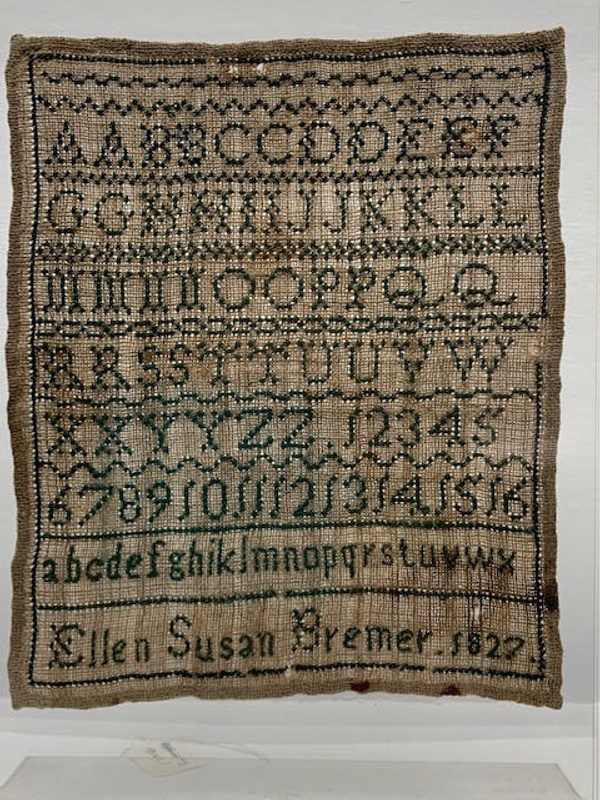 AABBCCDDEEF
GGHHIIJJKKLL
MMNNOOPPQQ
RRSSTTUUVW
XXYYZZ.12345
678910111213141516
abcdefghiklmnopqrstuvwx
Ellen Susan Bremer. 1827.